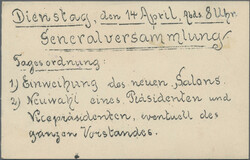 Dienstag, den 14 April, Abds. 8 Uhr.
Generalversammlung
Tagesordnung:
1) Einweihung des neuen Salons.
2) Neuwahl eines Präsidenten und
Vicepräsidenten, eventuell des
ganzen Vorstandes.